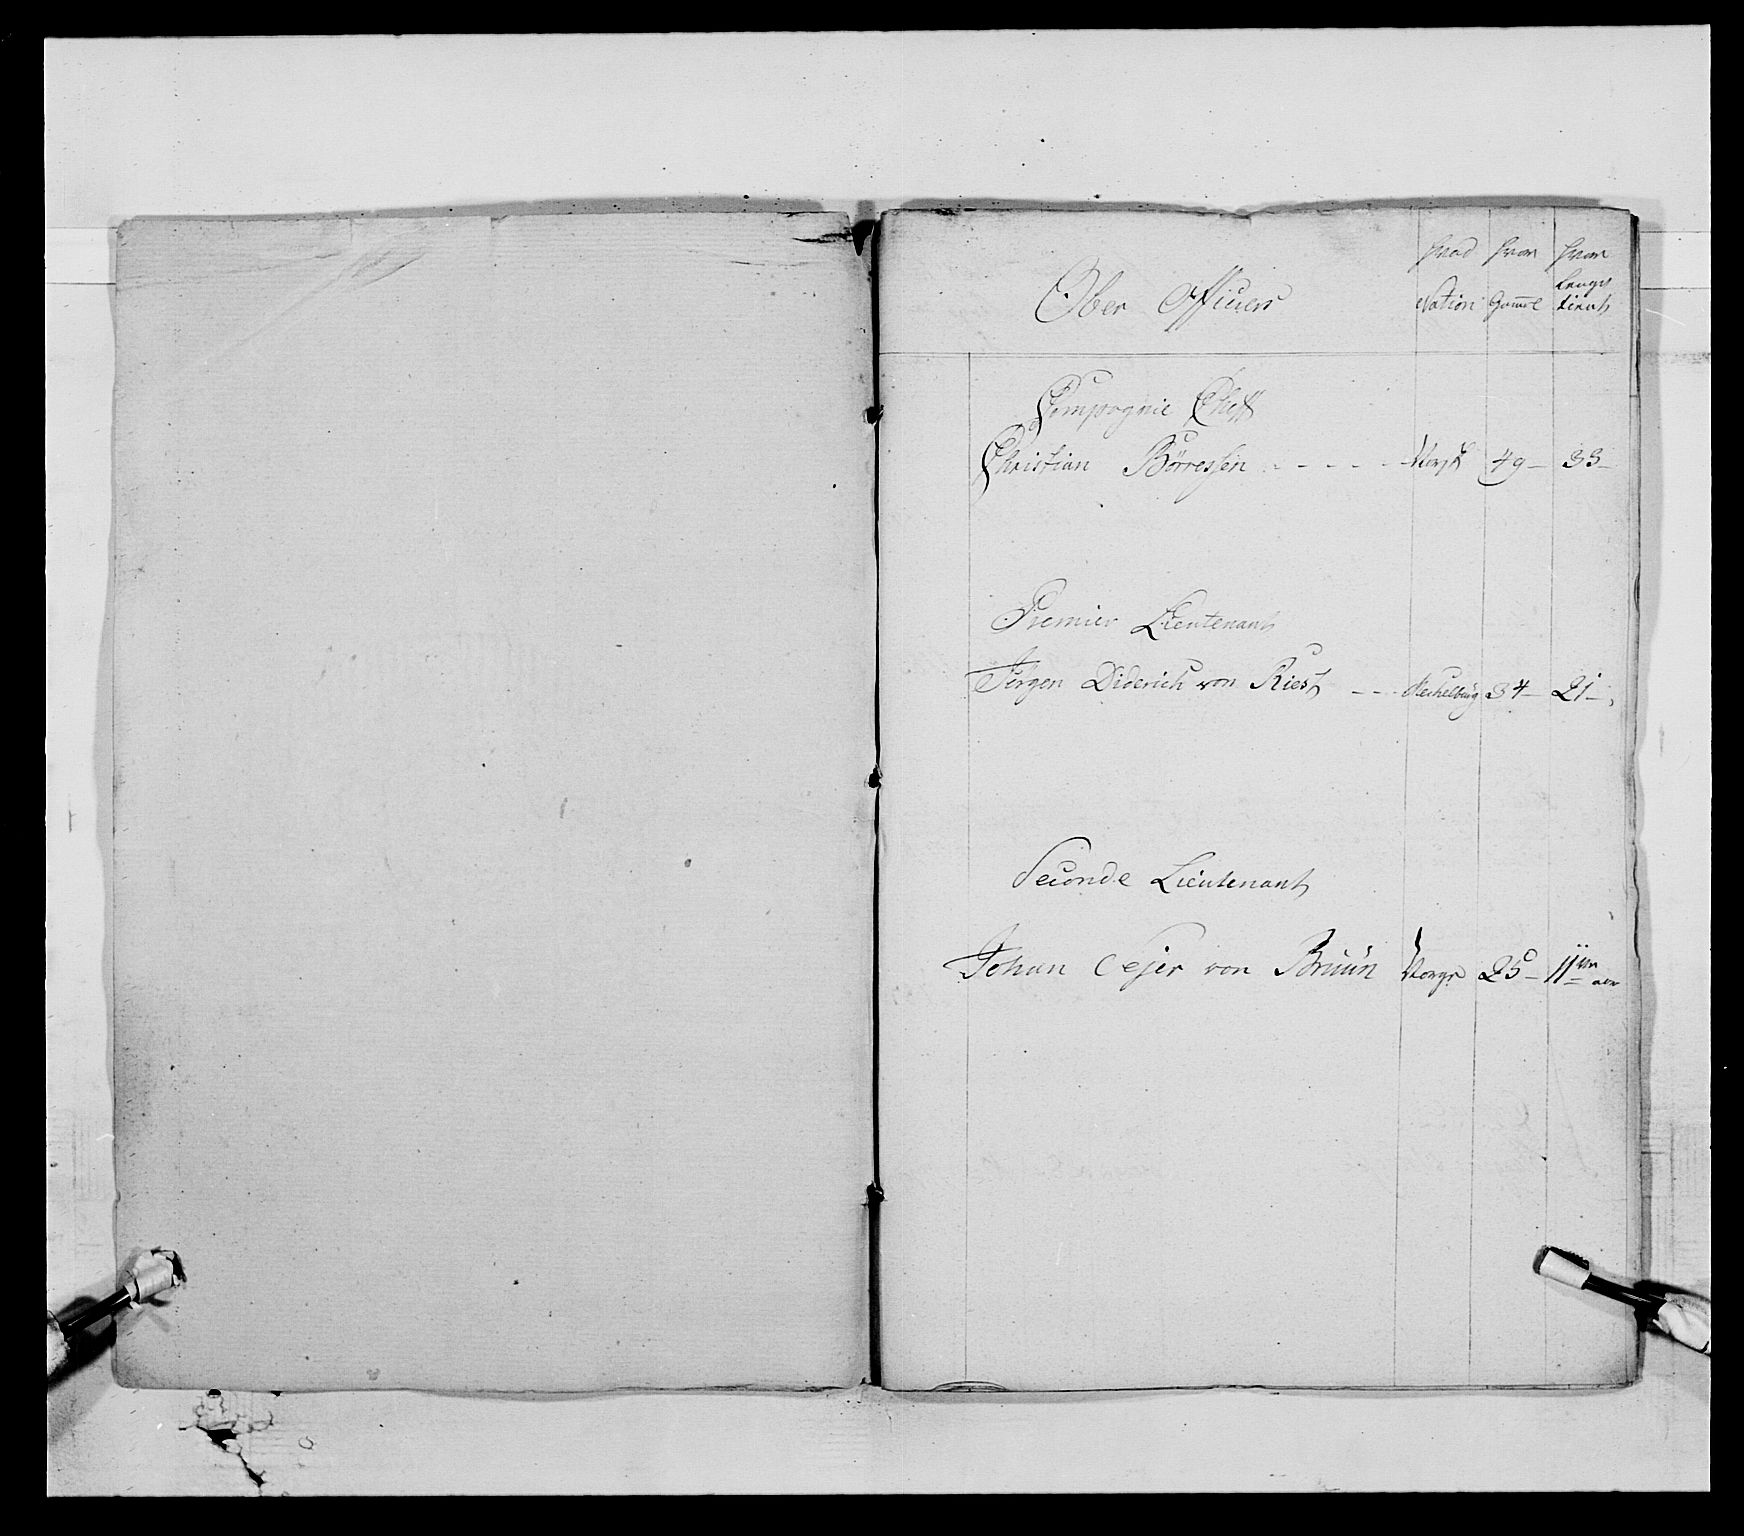 Ober Officiers
hvad Nation
hvor Gamel
hvor lenge tient
Compagnie Cheff
Christian Börressen - - - - - Norsk 49 - 33 -
Premier Lieutenant
Jörgen Diderich von Riest - - - Mechelburg 34 - 21 -
Seconde Lieutenant
Johan Vejer von Bruün Norge 25 - 11